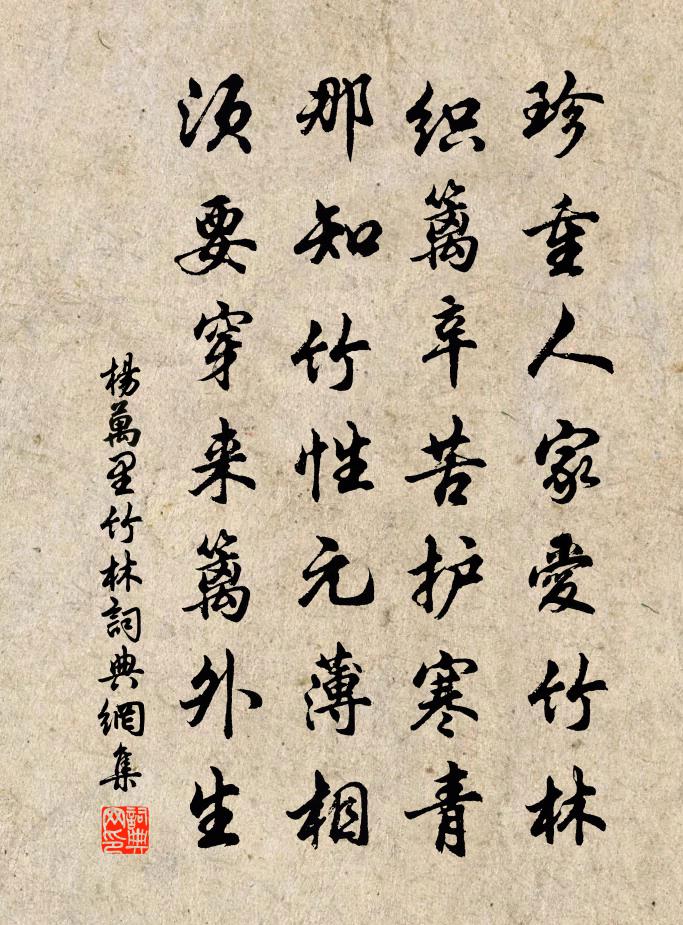 珍重人家愛竹林
织篱辛苦护寒青
那知竹性元薄相
须要穿来篱外生
楊萬里竹林詞典網集
詞典网印